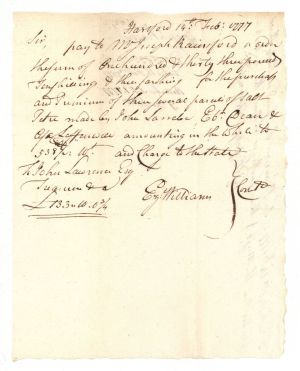 Hartford 14th Feb: 1777
Sir,
pay to Mr Joseph
the sum of One hundred & thirty three pounds
Ten shillings & three farthings for the purchase
and Premium of three several parcels of Salt
Petre made by John Eb: Dean &
amounting in the whole to
538 lb: Wt and Charge to the State
To John Lawrence Esq
Treasurer
Ezl Williams
Comtt
£133..10..0¾